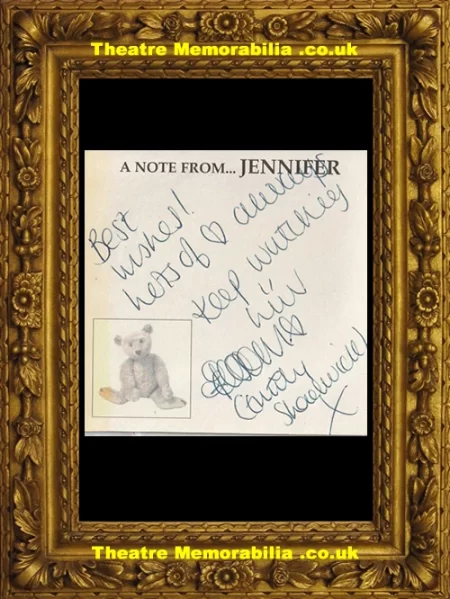 Theatre Memorabilia .co.uk
A NOTE FROM... JENNIFER
Best
wishes!
lots of ♡ always
Keep watching
Candy
x
Theatre Memorabilia .co.uk